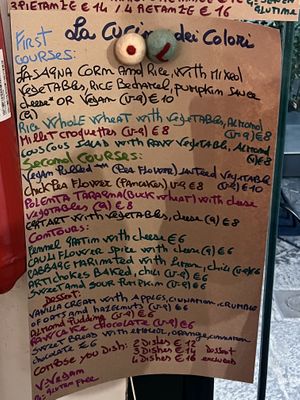 3 PIETANZE € 14 / 4 PIETANZE € 16
GLUTINE
La Cucina dei Colori
First
Courses:
LASAGNA CORN AND RICE, WITH MIXED
VEGETABLES, RICE BECHAMEL, PUMPKIN SAUCE
CHEESE OR VEGAN (V-G) € 10
(G)
RICE WHOLE WHEAT WITH VEGETABLES, ALMOND
(V-G) € 8
MILLET CROQUETTES (V-G) € 8
COUSCOUS SALAD WITH RAW VEGETABLE, ALMOND
(V) € 8
Second Courses:
VEGAN PULLED (PEA FLOWER) VEGETABLE
CHICKPEA FLOWER (PANCAKES) V-G € 8 € 10
POLENTA TARAGNA (BUCKWHEAT) WITH CHEESE
VEGETABLES (G) € 8
TART WITH VEGETABLES, CHEESE (G) € 8
CONTOURS:
FENNEL GRATIN WITH CHEESE € 6
CAULIFLOWER SPICE WITH CHEESE (G) € 6
CABBAGE MARINATED WITH LEMON, CHILI (V-G) € 6
ARTICHOKES BAKED, CHILI (V-G) € 6
SWEET AND SOUR PUMPKIN (V-G) € 6
DESSERT:
VANILLA CREAM WITH APPLES, CINNAMON, CRUMBLE
OF OATS AND HAZELNUTS (V-G) € 6
ALMOND PUDDING (V-G) € 6
RAW CAKE CHOCOLATE (V-G) € 6
SWEET BREAD WITH ORANGE, CINNAMON
CHOCOLATE € 6
COMPOSE YOU DISH: 2 DISHES € 12
3 DISHES € 14 DESSERT
4 DISHES € 16 EXCLUDED
V: VEGAN
G: GLUTEN FREE